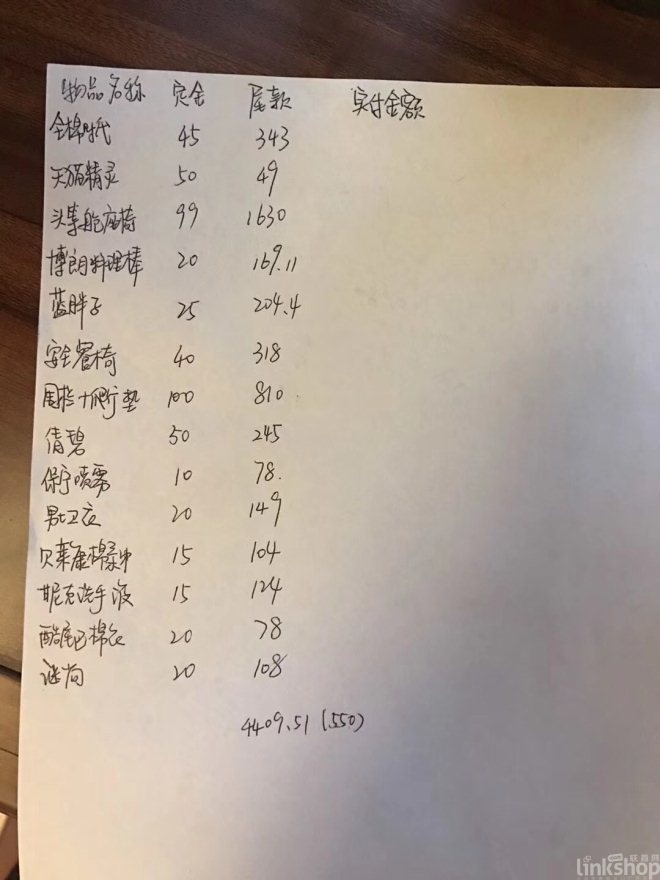 物品名称 定金 尾款 实付金额
全棉时代 45 343
天猫精灵 50 49
头等舱座椅 99 1630
博朗料理棒 20 169.11
蓝胖子 25 204.4
安全餐椅 40 318
围挡+爬行垫 100 810
倩碧 50 245
保宁喷雾 10 78.
男士卫衣 20 149
贝莱康棉柔巾 15 104
斯尼克洗手液 15 124
酷尾巴棉衣 20 78
谜尚 20 108
4409.51 (550)
联商网
linkshop